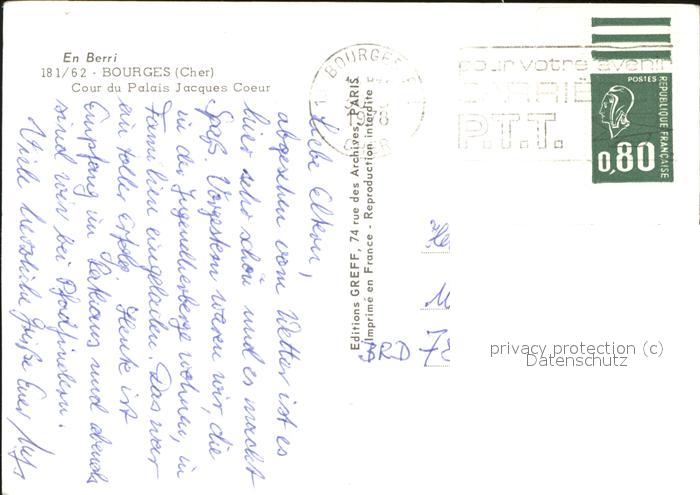 En Berri
181/62 - BOURGES (Cher)
Cour du Palais Jacques Coeur
Liebe Eltern,
abgesehen vom Wetter ist es
hier sehr schön und es macht
Spaß. Vorgestern waren wir, die
in der Jugendherberge wohnen, in
Familien eingeladen. Das war
ein toller Erfolg. Heute ist
Empfang im Rathaus und abends
sind wir bei Pfadfindern.
Viele herzliche Grüße Euer
Editions GREFF, 74 rue des Archives, PARIS
Imprimé en France - Reproduction interdite
BOURGES
CHER
pour votre avenir
CARRIÈ
P.T.T.
POSTES
REPUBLIQUE FRANÇAISE
0,80
BRD 78
privacy protection (c)
Datenschutz